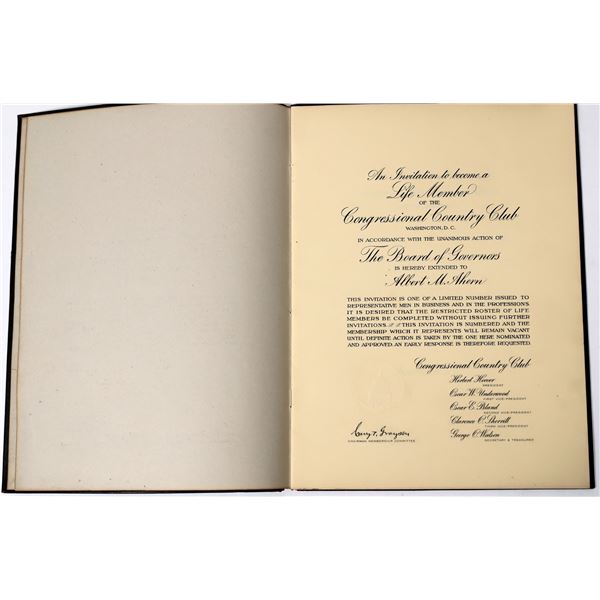 An Invitation to become a
Life Member
OF THE
Congressional Country Club
WASHINGTON, D.C.
IN ACCORDANCE WITH THE UNANIMOUS ACTION OF
The Board of Governors
IS HEREBY EXTENDED TO
Albert M. Ahern
THIS INVITATION IS ONE OF A LIMITED NUMBER ISSUED TO
REPRESENTATIVE MEN IN BUSINESS AND IN THE PROFESSIONS.
IT IS DESIRED THAT THE RESTRICTED ROSTER OF LIFE
MEMBERS BE COMPLETED WITHOUT ISSUING FURTHER
INVITATIONS. THIS INVITATION IS NUMBERED AND THE
MEMBERSHIP WHICH IT REPRESENTS WILL REMAIN VACANT
UNTIL DEFINITE ACTION IS TAKEN BY THE ONE HERE NOMINATED
AND APPROVED. AN EARLY RESPONSE IS THEREFORE REQUESTED.
Congressional Country Club
Herbert Hoover
PRESIDENT
Oscar W. Underwood
FIRST VICE-PRESIDENT
Oscar E. Bland
SECOND VICE-PRESIDENT
Clarence O. Sherrill
THIRD VICE-PRESIDENT
George O. Watson
SECRETARY & TREASURER
Cary T. Grayson
CHAIRMAN MEMBERSHIP COMMITTEE